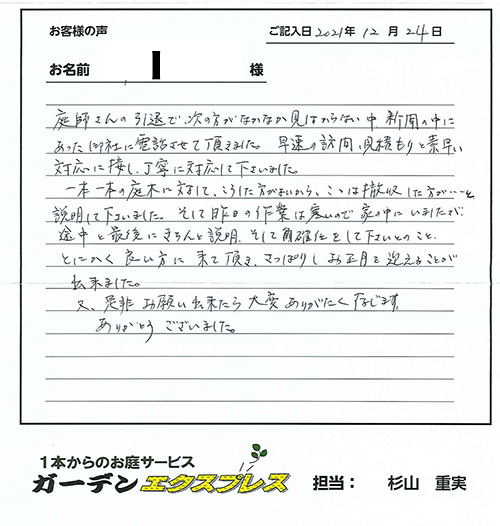 お客様の声
ご記入日 2021年 12月 24日
お名前 様
庭師さんの引退で、次の方がなかなか見つからない中 新聞の中に
あった御社に電話させて頂きました。早速の訪問、見積もりと素早い
対応に接し、丁寧に対応して下さいました。
一本一本の庭木に対して、こうした方がよいから、ここは撤収した方が…と
説明して下さいました。そして昨日の作業は寒いので家の中にいましたが、
途中と最後にきちんと説明、そして再確認をして下さいとのこと、
とにかく良い方に来て頂き、さっぱりしお正月を迎えることが
出来ました。
又、是非お願い出来たら大変ありがたく存じます。
ありがとうございました。
1本からのお庭サービス
ガーデンエクスプレス
担当： 杉山 重実